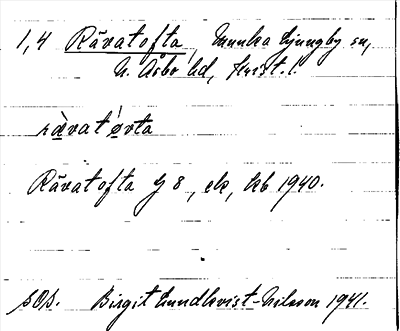 1,4 Rävatofta, Munka Ljungby sn,
N. Åsbo hd, Krist. l.
rä̀vat ǿvta
Rävatofta g 8, ek, kb 1940.
SOS. Birgit Lundkvist-Nilsson 1941.